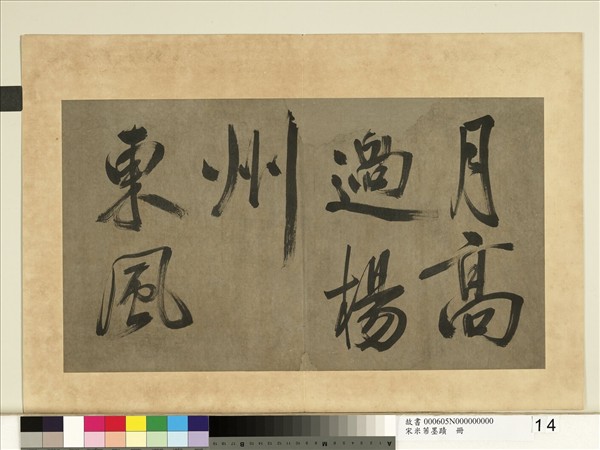 月高
過楊
州
東風
故書 000605N000000000
宋米芾墨蹟 冊
14